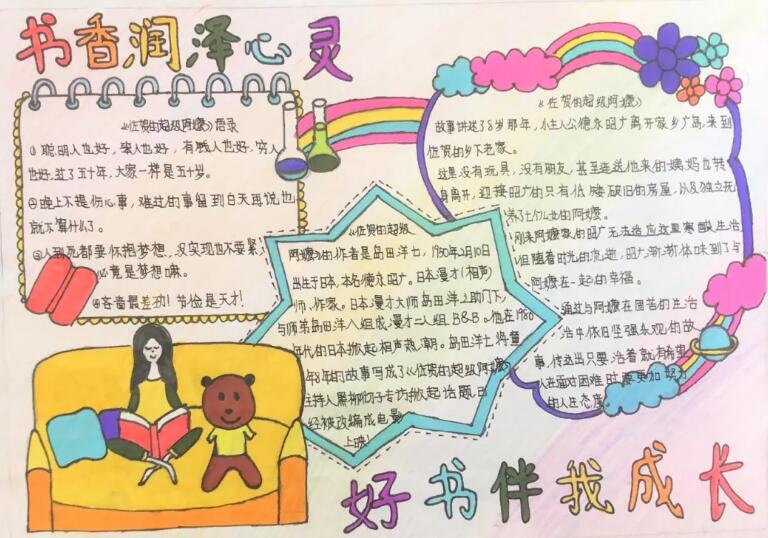 书香润泽心灵
《佐贺的超级阿嬷》语录
①聪明人也好,笨人也好,有钱人也好,穷人
也好,过了五十年,大家一样是五十岁。
②晚上不提伤心事,难过的事留到白天再说也
就不算什么了。
③人到死都要怀抱梦想,没实现也不要紧,
必竟是梦想嘛。
④吝啬最差劲!节俭是天才!
《佐贺的超级
阿嬷》的作者是岛田洋七,1950年2月10日
出生于日本,本名德永昭广。日本漫才(相声)
师,作家。日本漫才大师岛田洋之助门下,
与师弟岛田洋八组成漫才二人组B&B。他在1980
年代的日本掀起相声热潮。岛田洋七将童
年8年的故事写成了《佐贺的超级阿嬷》
主持人黑柳彻子专访掀起话题,已
经被改编成电影
上映!
《佐贺的超级阿嬷》
故事讲述了8岁那年,小主人公德永昭广离开家乡广岛,来到
佐贺的乡下老家。
这里没有玩具,没有朋友,甚至连送他来的姨妈也转
身离开,迎接昭广的只有低矮破旧的房屋,以及独立抚
养了七个儿女的阿嬷。
刚来阿嬷家的昭广无法适应这里寒酸生活
但随着时光的流逝,昭广渐渐体味到了与
阿嬷在一起的幸福。
通过与阿嬷在困苦的生活
活中依旧坚强乐观的故
事,传达出只要活着就有希望
人在面对困难时要更加努力
的人生态度。
好书伴我成长